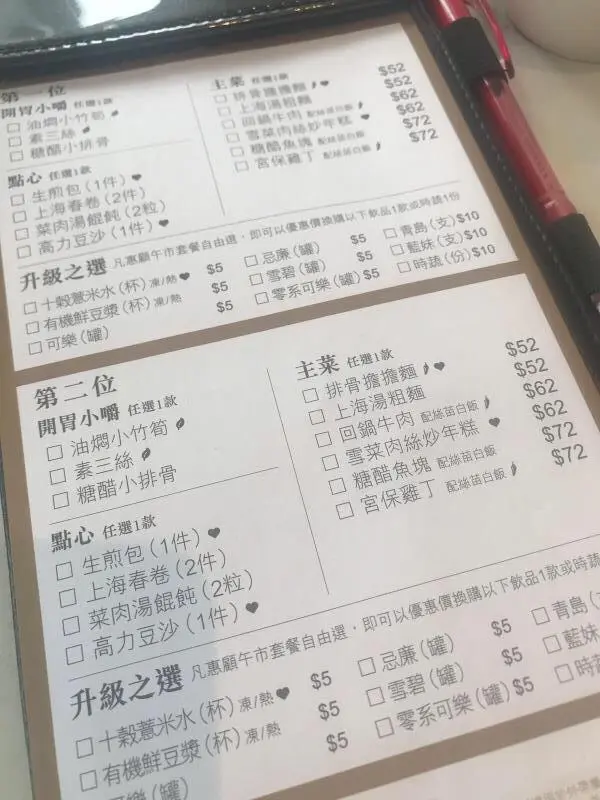 第一位
開胃小嚼 任選1款
□ 油燜小竹筍
□ 素三絲
□ 糖醋小排骨
點心 任選1款
□ 生煎包(1件)
□ 上海春卷(2件)
□ 菜肉湯餛飩(2粒)
□ 高力豆沙(1件)
主菜 任選1款
□ 排骨擔擔麵 $52
□ 上海湯粗麵 $52
□ 回鍋牛肉 配絲苗白飯 $62
□ 雪菜肉絲炒年糕 $62
□ 糖醋魚塊 配絲苗白飯 $72
□ 宮保雞丁 配絲苗白飯 $72
升級之選 凡惠顧午市套餐自由選,即可以優惠價換購以下飲品1款或時蔬1份
□ 十穀薏米水(杯) 凍/熱 $5
□ 有機鮮豆漿(杯) 凍/熱 $5
□ 可樂(罐) $5
□ 忌廉(罐) $5
□ 雪碧(罐) $5
□ 零系可樂(罐) $5
□ 青島(支) $10
□ 藍妹(支) $10
□ 時蔬(份) $10
第二位
開胃小嚼 任選1款
□ 油燜小竹筍
□ 素三絲
□ 糖醋小排骨
點心 任選1款
□ 生煎包(1件)
□ 上海春卷(2件)
□ 菜肉湯餛飩(2粒)
□ 高力豆沙(1件)
主菜 任選1款
□ 排骨擔擔麵 $52
□ 上海湯粗麵 $52
□ 回鍋牛肉 配絲苗白飯 $62
□ 雪菜肉絲炒年糕 $62
□ 糖醋魚塊 配絲苗白飯 $72
□ 宮保雞丁 配絲苗白飯 $72
升級之選 凡惠顧午市套餐自由選,即可以優惠價換購以下飲品1款或時蔬
□ 十穀薏米水(杯) 凍/熱 $5
□ 有機鮮豆漿(杯) 凍/熱 $5
可樂(罐) $5
□ 忌廉(罐) $5
□ 雪碧(罐) $5
□ 零系可樂(罐) $5
□ 青島(支
□ 藍妹
□ 時蔬